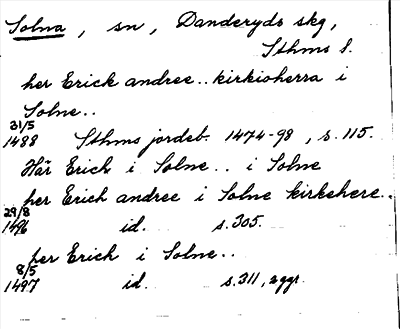 Solna, sn, Danderyds skg,
Sthms l.
her Erick andree.. kirkioherra i
Solne..
31/5
1488 Sthms jordeb. 1474-98, s. 115.
Här Erich i Solne.. i Solne
her Erich andree i Solne kirkehere..
29/8
1496 id. s. 305.
her Erich i Solne..
8/5
1497 id. s. 311, 2 ggr.